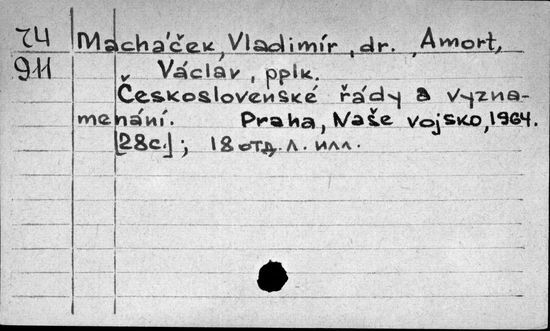 74 Macháček, Vladimír, dr., Amort,
911 Václav, pplk.
Československé řády a vyzna-
menání. Praha, Naše vojsko, 1964.
[28c.]; 18 отд. л. илл.